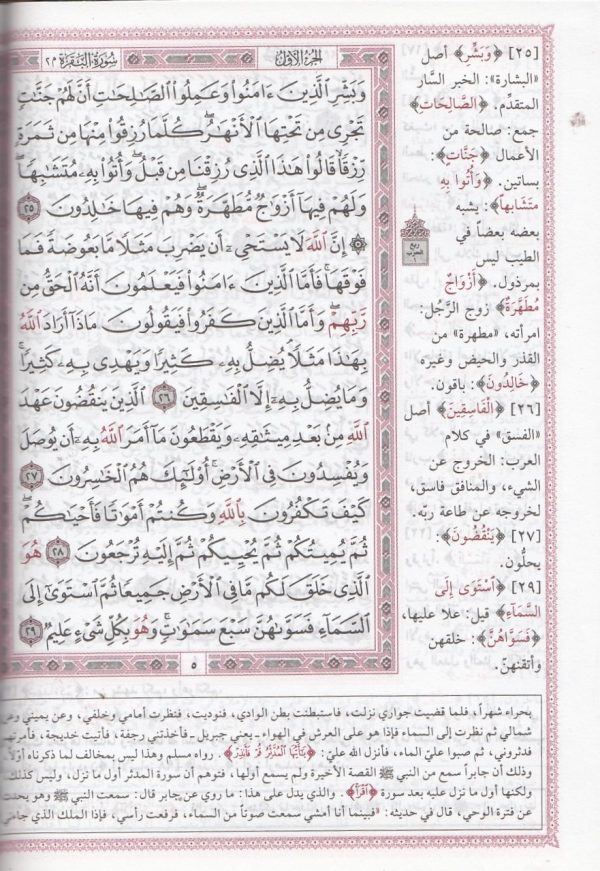 سُورَةُ البَقَرَة ٢
الجُزءُ الأوّل
وَبَشِّرِ الَّذِينَ ءَامَنُوا وَعَمِلُوا الصَّالِحَاتِ أَنَّ لَهُمْ جَنَّاتٍ
تَجْرِي مِن تَحْتِهَا الْأَنْهَارُ كُلَّمَا رُزِقُوا مِنْهَا مِن ثَمَرَةٍ
رِّزْقًا قَالُوا هَذَا الَّذِي رُزِقْنَا مِن قَبْلُ وَأُتُوا بِهِ مُتَشَابِهًا
وَلَهُمْ فِيهَا أَزْوَاجٌ مُّطَهَّرَةٌ وَهُمْ فِيهَا خَالِدُونَ ٢٥
۞ إِنَّ اللَّهَ لَا يَسْتَحْيِي أَن يَضْرِبَ مَثَلًا مَّا بَعُوضَةً فَمَا
فَوْقَهَا فَأَمَّا الَّذِينَ ءَامَنُوا فَيَعْلَمُونَ أَنَّهُ الْحَقُّ مِن
رَّبِّهِمْ وَأَمَّا الَّذِينَ كَفَرُوا فَيَقُولُونَ مَاذَا أَرَادَ اللَّهُ
بِهَذَا مَثَلًا يُضِلُّ بِهِ كَثِيرًا وَيَهْدِي بِهِ كَثِيرًا
وَمَا يُضِلُّ بِهِ إِلَّا الْفَاسِقِينَ ٢٦ الَّذِينَ يَنقُضُونَ عَهْدَ
اللَّهِ مِن بَعْدِ مِيثَاقِهِ وَيَقْطَعُونَ مَا أَمَرَ اللَّهُ بِهِ أَن يُوصَلَ
وَيُفْسِدُونَ فِي الْأَرْضِ أُولَئِكَ هُمُ الْخَاسِرُونَ ٢٧
كَيْفَ تَكْفُرُونَ بِاللَّهِ وَكُنتُمْ أَمْوَاتًا فَأَحْيَاكُمْ
ثُمَّ يُمِيتُكُمْ ثُمَّ يُحْيِيكُمْ ثُمَّ إِلَيْهِ تُرْجَعُونَ ٢٨ هُوَ
الَّذِي خَلَقَ لَكُم مَّا فِي الْأَرْضِ جَمِيعًا ثُمَّ اسْتَوَى إِلَى
السَّمَاءِ فَسَوَّاهُنَّ سَبْعَ سَمَاوَاتٍ وَهُوَ بِكُلِّ شَيْءٍ عَلِيمٌ ٢٩
٥
[٢٥] ﴿وَبَشِّر﴾ أصل
«البشارة»: الخبر السَّار
المتقدِّم. ﴿الصَّالِحَاتِ﴾
جمع: صالحة من
الأعمال ﴿جَنَّاتٍ﴾:
بساتين. ﴿وَأُتُوا بِهِ
مُتَشَابهاً﴾: يشبه
بعضه بعضاً في
الطيب ليس
بمرذول. ﴿أَزْوَاجٌ
مُطَهَّرَةٌ﴾ زوج الرَّجُل:
امرأته، «مطهرة» من
القذر والحيض وغيره
﴿خَالِدُونَ﴾: باقون.
[٢٦] ﴿الْفَاسِقِينَ﴾ أصل
«الفسق» في كلام
العرب: الخروج عن
الشيء، والمنافق فاسق،
لخروجه عن طاعة ربّه.
[٢٧] ﴿يَنْقُضُونَ﴾:
يحلُّون.
[٢٩] ﴿اسْتَوَى إِلَى
السَّمَاءِ﴾ قيل: علا عليها،
﴿فَسَوَّاهُنَّ﴾: خلقهن
وأتقنهنّ.
ربع
الحزب
بحراء شهراً، فلما قضيت جواري نزلت، فاستبطنت بطن الوادي، فنوديت، فنظرت أمامي وخلفي، وعن يميني وعن
شمالي ثم نظرت إلى السماء فإذا هو على العرش في الهواء -يعني جبريل- فأخذتني رجفة، فأتيت خديجة، فأمرتهم
فدثروني، ثم صبوا عليّ الماء، فأنزل الله عليّ: ﴿يَا أَيُّهَا الْمُدَّثِّرُ قُمْ فَأَنْذِرْ﴾. رواه مسلم وهذا ليس بمخالف لما ذكرناه أولاً
وذلك أن جابراً سمع من النبي ﷺ القصة الأخيرة ولم يسمع أولها، فتوهم أن سورة المدثر أول ما نزل، وليس كذلك
ولكنها أول ما نزل عليه بعد سورة ﴿اقْرَأْ﴾. والذي يدل على هذا: ما روي عن جابر قال: سمعت النبي ﷺ وهو يحدث
عن فترة الوحي، قال في حديثه: «فبينما أنا أمشي سمعت صوتاً من السماء، فرفعت رأسي، فإذا الملك الذي